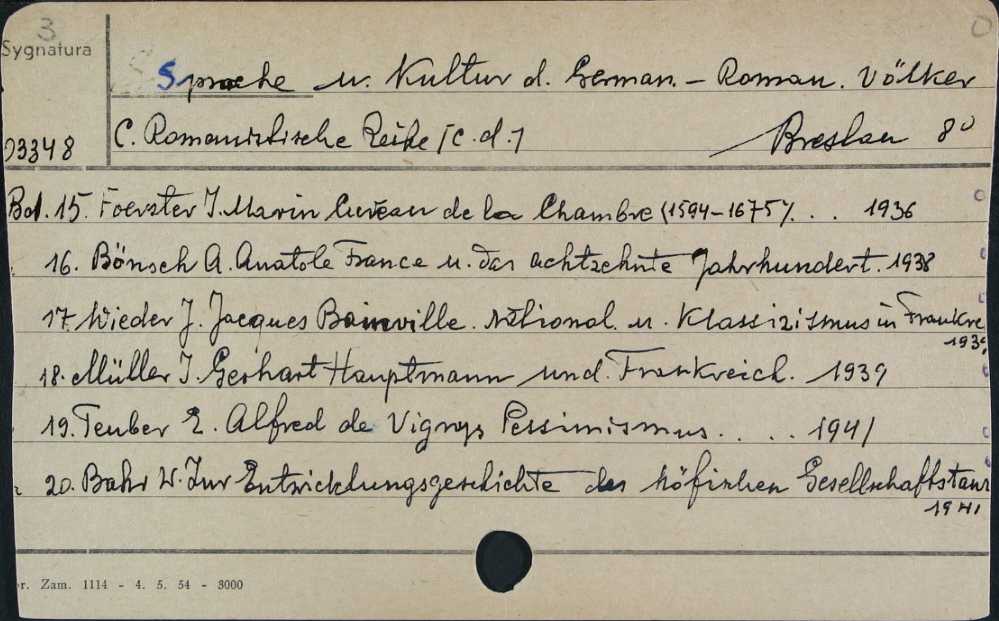 3
Sygnatura
Sprache u. Kultur d. German. - Roman. Völker
03348
C. Romanistische Reihe /c.d./ Breslau 8°
Bd. 15. Foerster I. Marin Cureau de la Chambre (1594-1675). . . 1936
16. Bönsch A. Anatole France u. das achtzehnte Jahrhundert. 1938
17. Wieder J. Jacques Bainville. National. u. Klassizismus in Frankre
1939
18. Müller I. Gerhart Hauptmann und. Frankreich. 1939
19. Teuber E. Alfred de Vignys Pessimismus. . . . . 1941
20. Bahr W. Zur Entwicklungsgeschichte des höfischen Gesellschaftstanz
1941
r. Zam. 1114 - 4. 5. 54 - 3000